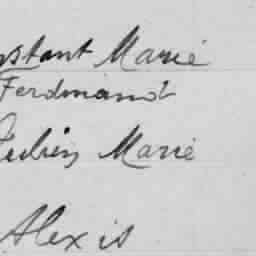 nstant Marie
Ferdinand
Julien Marie
Alexis